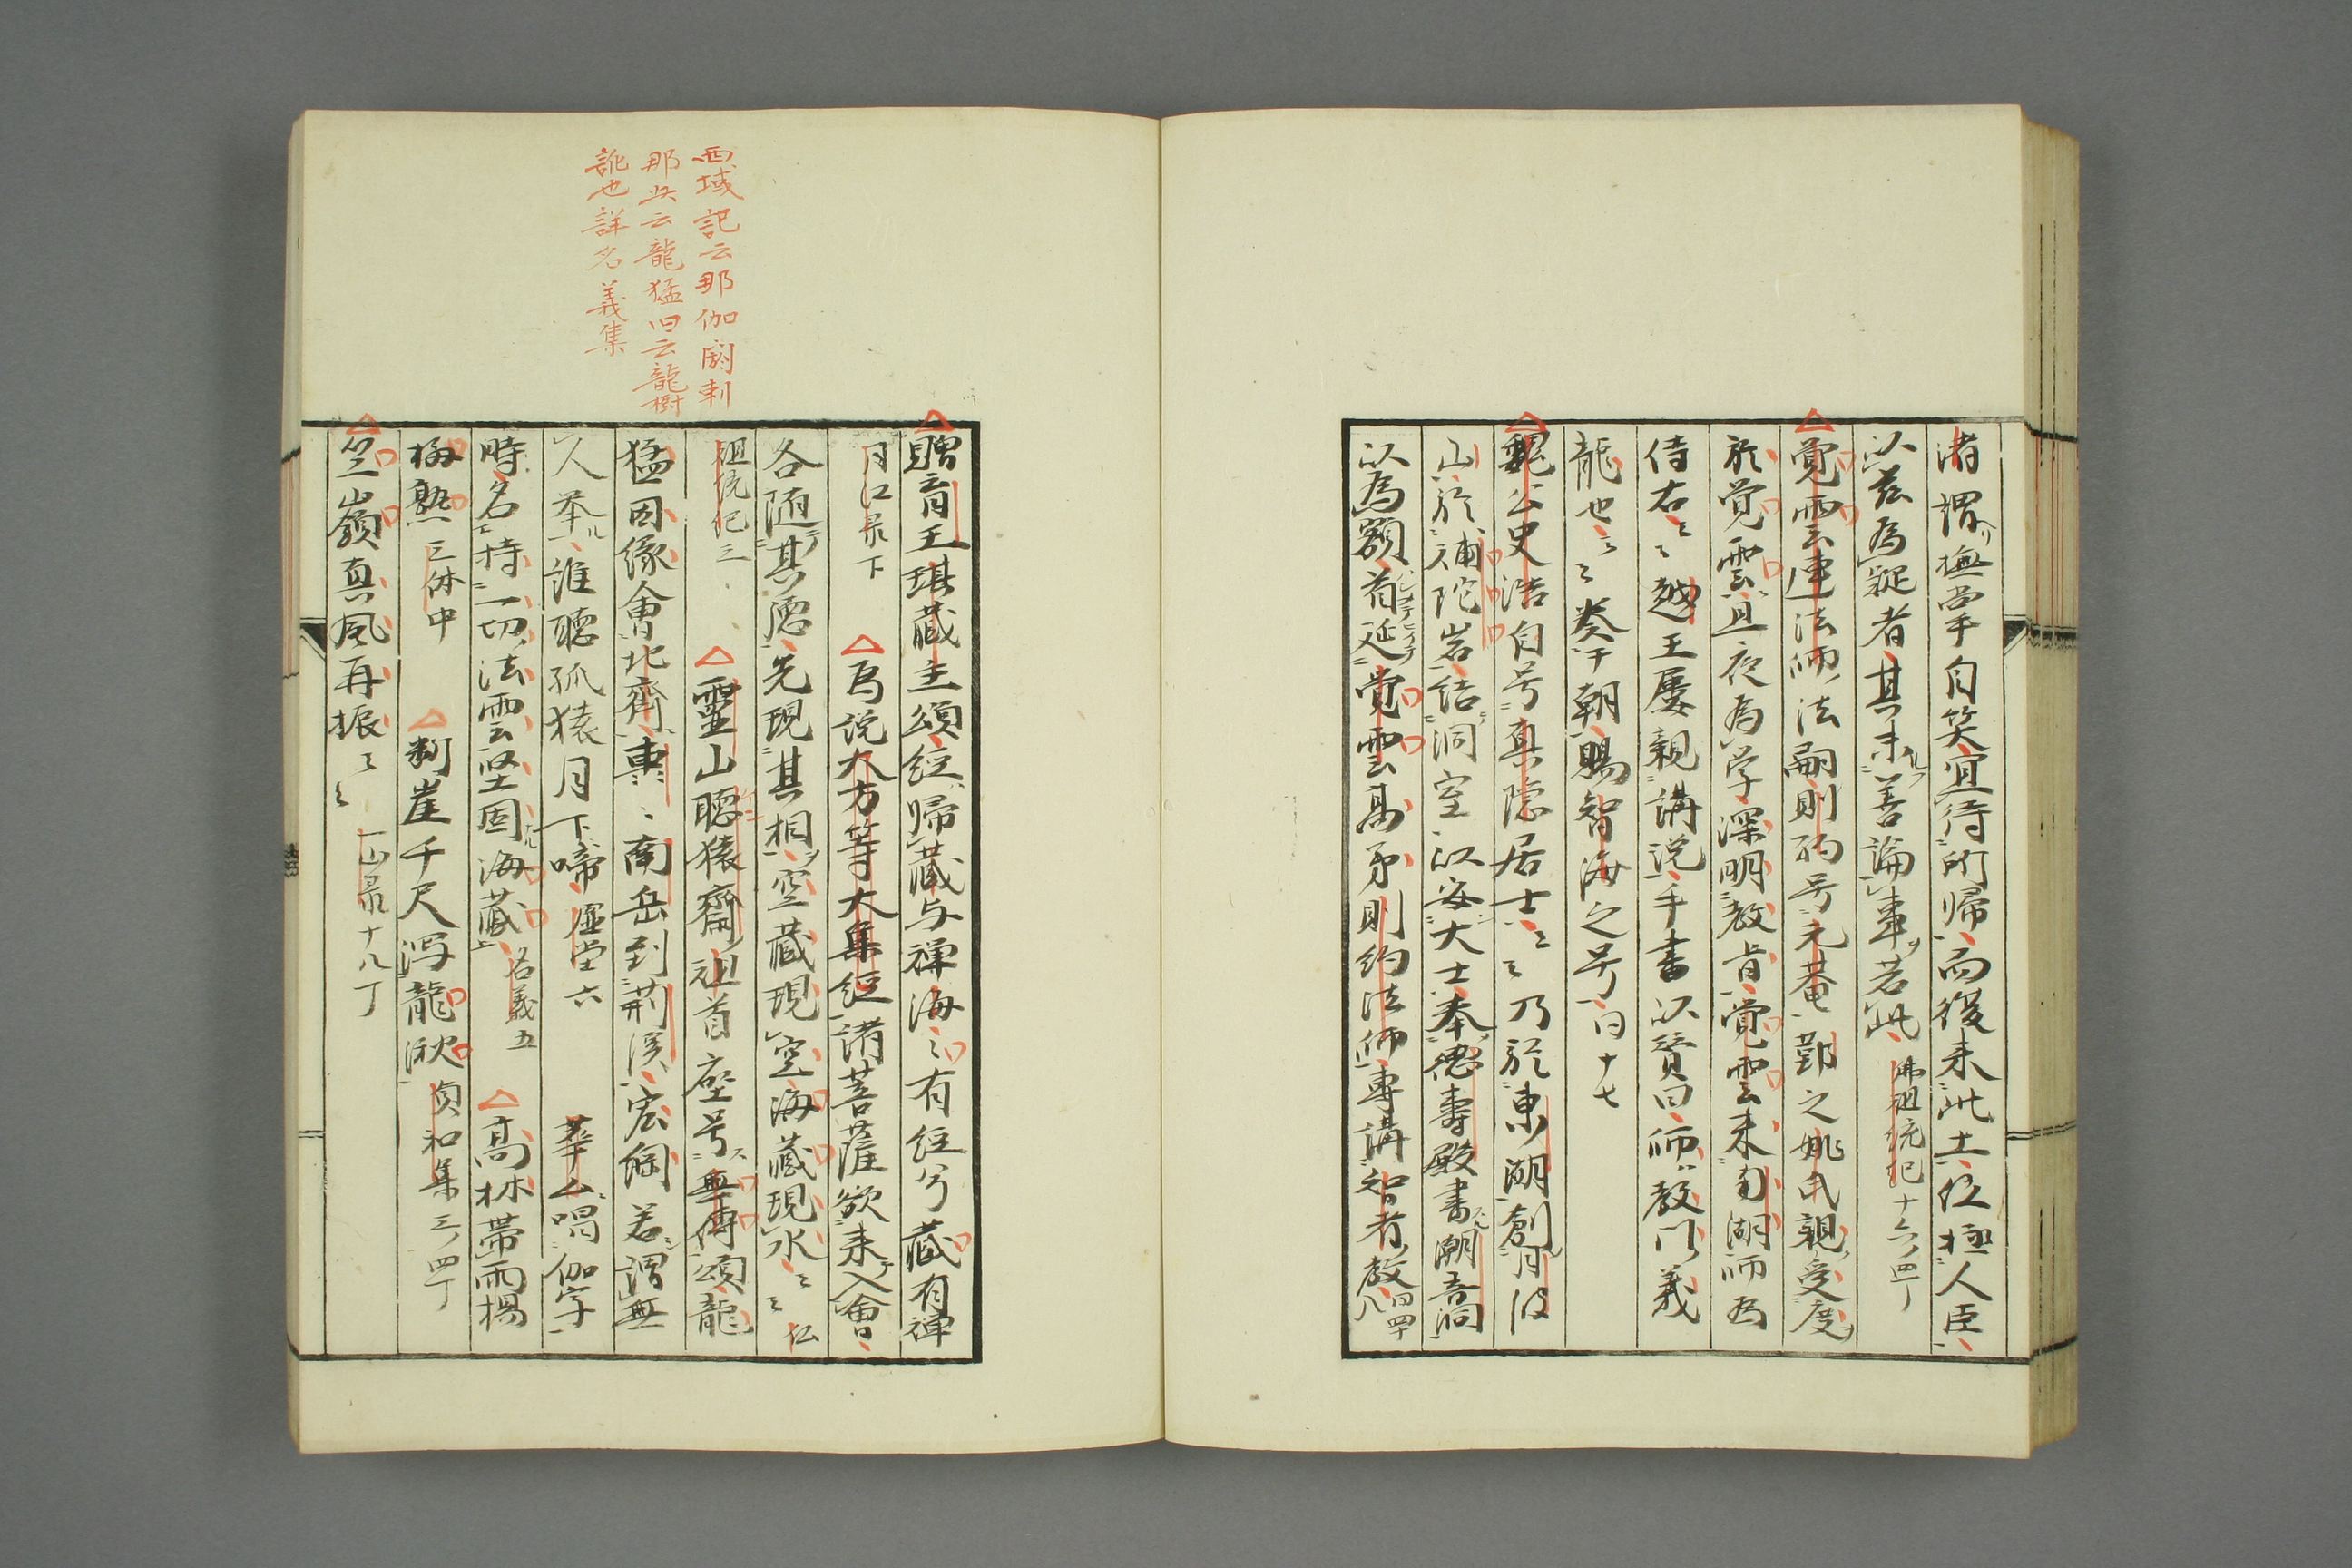 渚謂撫掌自笑宜待所帰而後来此土位極人臣
以茲為疑者其未善論事若此 佛祖統紀十六 四丁
覚雲連法師法嗣則約号元菴鄞之姚氏親受度
於覚雲且夜為学深明教旨覚雲来南湖師為
侍右〻〻越王屡親講説手書以賛曰師教門義
龍也〻〻奏于朝賜智海之号 同十七
魏公史浩自号真隠居士〻〻乃於東湖創月波
山於補陀岩結洞室以安大士奉徳寿殿書潮音洞
以為額首延覚雲高弟則約法師専講智者教 同四十八
贈育王琪蔵主頌経帰蔵与禅海〻有経兮蔵有禅
月江录下 為説大方等大集経諸菩薩欲来入會
各随其徳先現其相空蔵現空海蔵現水〻〻 仏
祖統紀三 靈山聴猿齋祖首座号無傳頌龍
猛因縁會北齊東〻南岳到荊渓宏綱若謂無
人挙誰聴孤猿月下啼 虚堂六 華厶唱伽字
時名持一切法雲堅固海蔵 名義五 高林帯雨楊
梅熟 三体中 斷崖千尺瀉龍湫 貞和集三ノ四丁
竺嶺真風再振〻〻 一山录十八丁
西域記云那伽閼剌
那此云龍猛旧云龍樹
訛也詳名義集